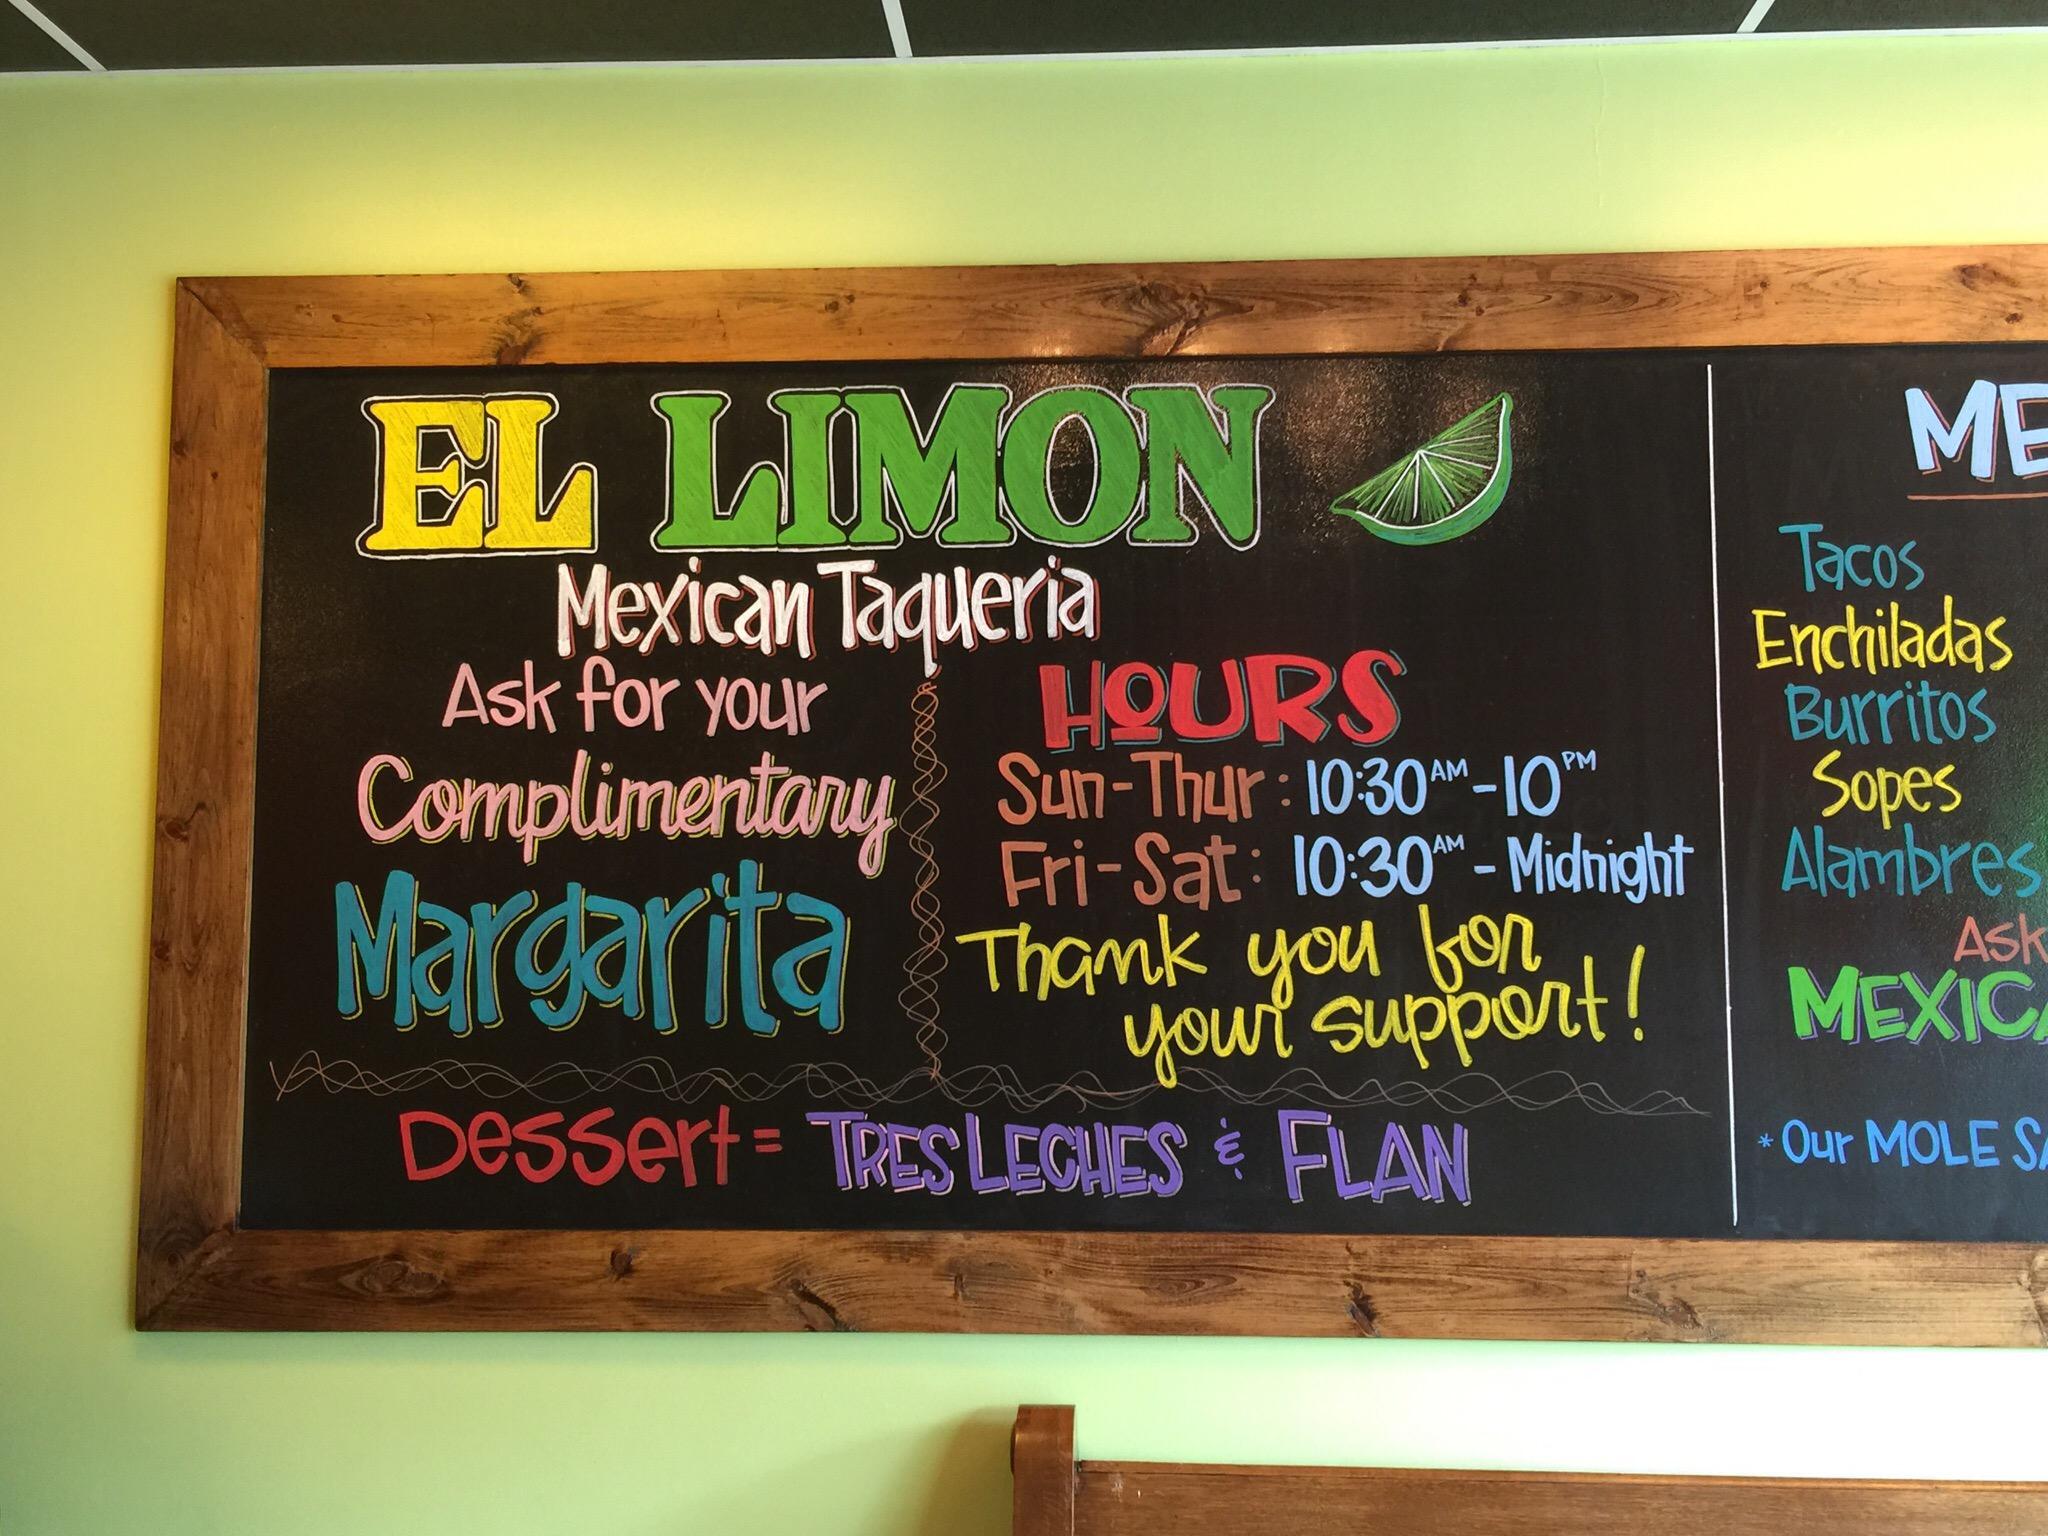 EL LIMON
Mexican Taqueria
Ask for your
Complimentary
Margarita
HOURS
Sun-Thur: 10:30AM-10PM
Fri-Sat: 10:30AM-Midnight
Thank you for
your support!
Dessert = TRES LECHES & FLAN
Tacos
Enchiladas
Burritos
Sopes
Alambres
Ask
* Our MOLE